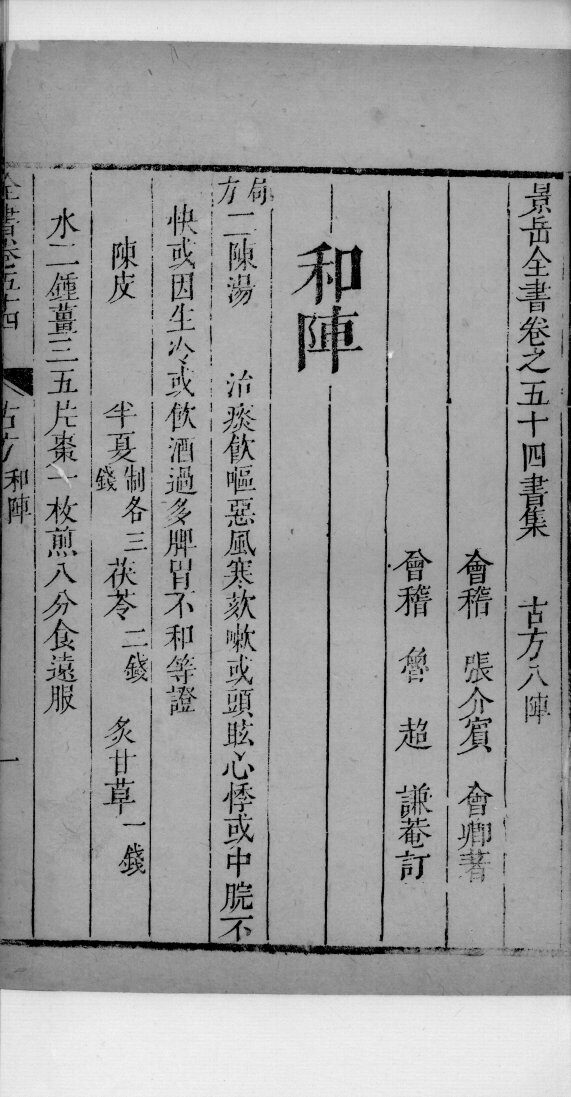 景岳全書卷之五十四書集　古方八陣
會稽　張介賓　會卿著
會稽　魯　超　謙菴訂
和陣
局方二陳湯　治痰飲嘔惡風寒欬嗽或頭眩心悸或中脘不
快或因生冷或飲酒過多脾胃不和等證
陳皮　半夏制各三錢　茯苓二錢　炙甘草一錢
水二鍾薑三五片棗一枚煎八分食遠服
全書卷五十四　古方　和陣　一